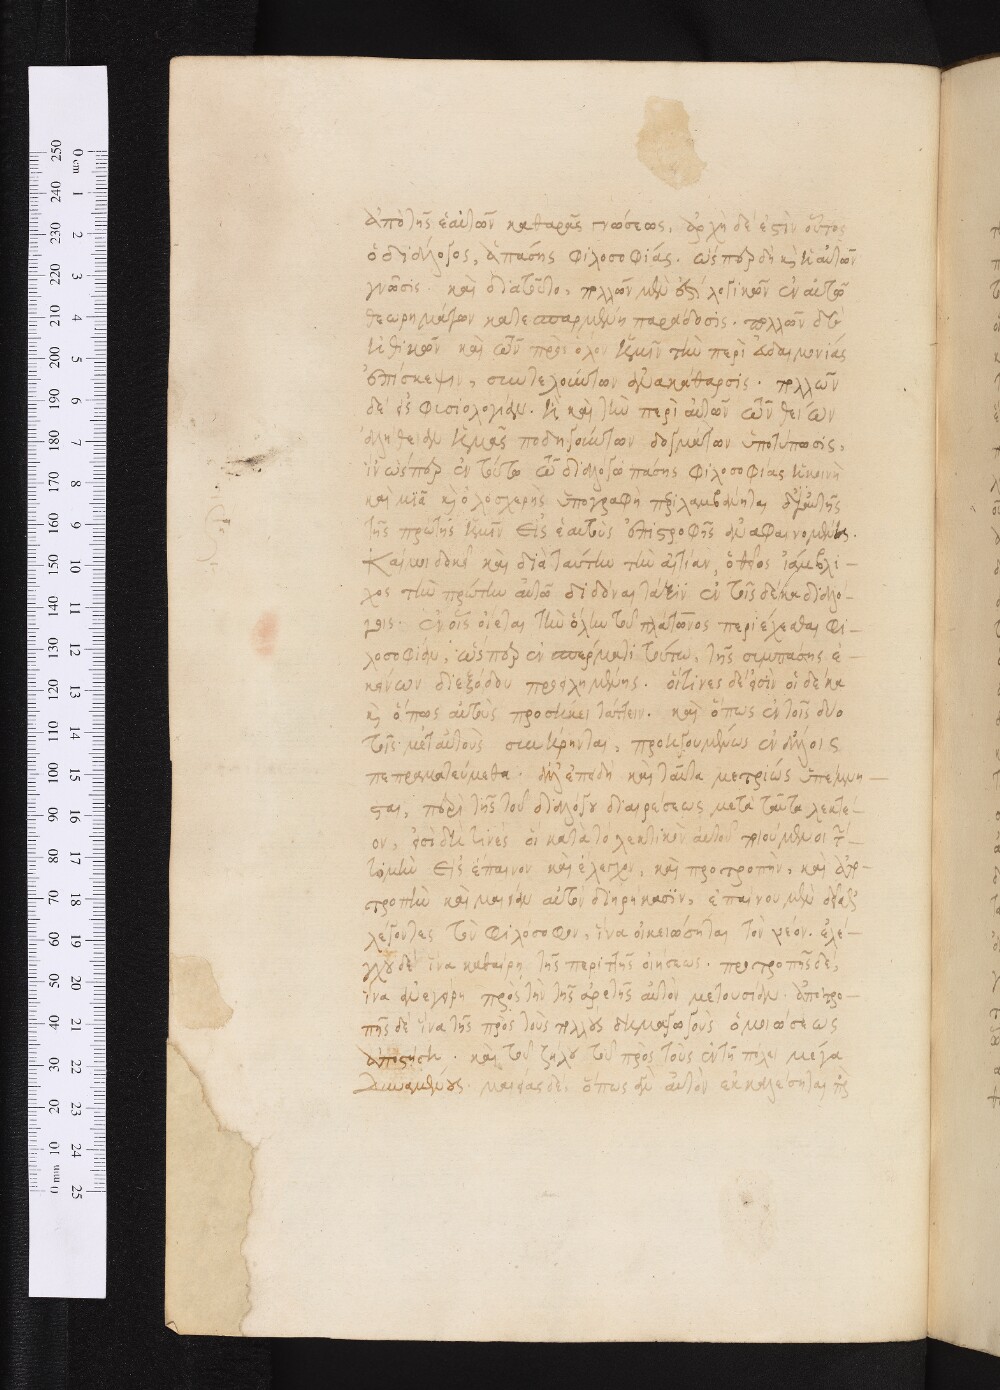 ἀπὸ τῆς ἑαυτῶν καθαρᾶς γνώσεως. ἀρχὴ δέ ἐστιν οὗτος
ὁ διάλογος, ἁπάσης φιλοσοφίας. ὥσπερ δὴ καὶ ἡ αὐτῶν
γνῶσις. καὶ διατοῦτο, πολλῶν μὲν ἐστὶ λογικῶν ἐν αὐτῷ
θεωρημάτων κατεσπαρμένη παράδοσις. πολλῶν δὲ
ἠθικῶν καὶ τῶν πρὸς ὅλον ἡμῖν τὴν περὶ εὐδαιμονίας
ἐπίσκεψιν, συντελούντων ἀνακάθαρσις. πολλῶν
δὲ εἰς φυσιολογίαν. ἢ καὶ τὴν περὶ αὐτῶν τῶν θείων
ἀλήθειαν ἡμᾶς ποδηγούντων δογμάτων ὑποτύπωσις,
ἵν ὥσπερ ἐν τούτῳ τῷ διαλόγῳ πάσης φιλοσοφίας ἡ κοινὴ
καὶ μία καὶ ὁλοσχερὴς ὑπογραφὴ περιλαμβάνηται δι' αὐτῆς
τῆς πρώτης ἡμῖν εἰς ἑαυτοὺς ἐπιστροφῆς ἀναφαινομένης.
Καί μοι δοκεῖ καὶ διὰ ταύτην τὴν αἰτίαν, ὁ θεῖος ἰάμβλι –
χος τὴν πρώτην αὐτῷ διδόναι τάξιν ἐν τοῖς δέκα διαλό –
γοις. ἐν οἷς οἴεται τὴν ὅλην τοῦ πλάτωνος περιέχεσθαι φι –
λοσοφίαν, ὥσπερ ἐν σπέρματι τούτῳ, τῆς συμπάσης ἐ –
κείνων διεξόδου προειλημμένης. οἵτινες δέ εἰσὶν οἱ δέκα
καὶ ὅπως αὐτοὺς προσήκει τάττειν. καὶ ὅπως ἐν τοῖς δυο
τοῖς μετ αὐτοὺς συνῄρηνται, προηγουμένως ἐν ἄλλοις
πεπραγματεύμεθα. ἀλλ' ἐπειδὴ καὶ ταῦτα μετρίως ὑπέμνη –
σται, περὶ τῆς τοῦ διαλόγου διαιρέσεως μετὰ ταῦτα λεκτέ –
ον, εἰσὶ δὴ τινὲς οἳ κατὰ τὸ λεκτικὸν αὐτοῦ
εἰς ἔπαινον καὶ ἔλεγχον, καὶ προτροπὴν, καὶ ἀπο –
τροπὴν καὶ μαιείαν αὐτὸν διῃρήκασιν, ἐπαίνου μὲν
λέγοντες τὸν φιλόσοφον, ἵνα οἰκειώσηται τὸν νέον. ἐλέ –
γχου δὲ ἵνα καθαίρῃ τῆς περιττῆς οἰήσεως. προτροπῆς δὲ,
ἵνα ἀνεγείρῃ πρὸς τὴν τῆς ἀρετῆς αὐτὸν μετουσίαν. ἀποτρο –
πῆς δὲ ἵνα τῆς πρὸς τοὺς πολλοὺς δημαγωγοὺς ὁμοιώσεως
ἀποστήσῃ. καὶ τοῦ ζήλου τοῦ πρὸς τοὺς ἐν τῇ πόλει μέγα
δυναμένους. μαιείας δὲ, ὅπως ἂν αὐτὸν ἐκκαλέσηται